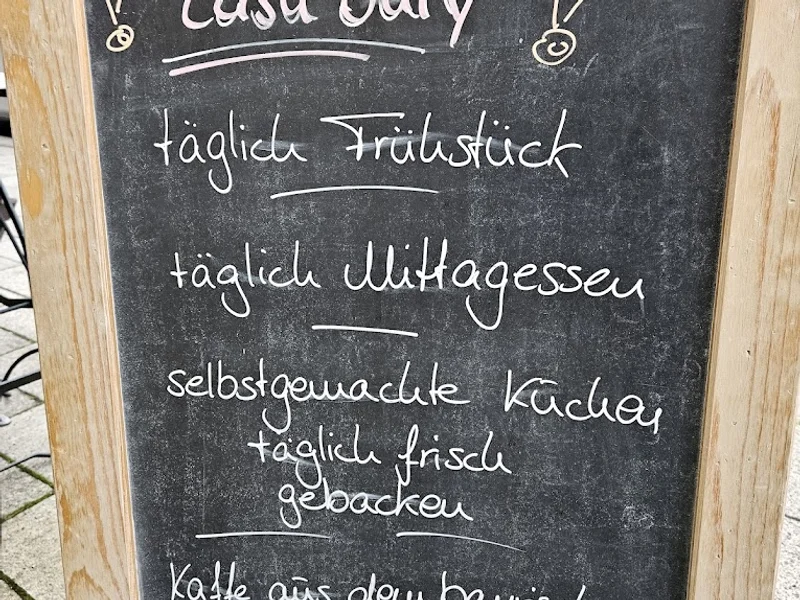 Casa
täglich Frühstück
täglich Mittagessen
selbstgemachte Kuchen
täglich frisch
gebacken
Kaffe aus dem